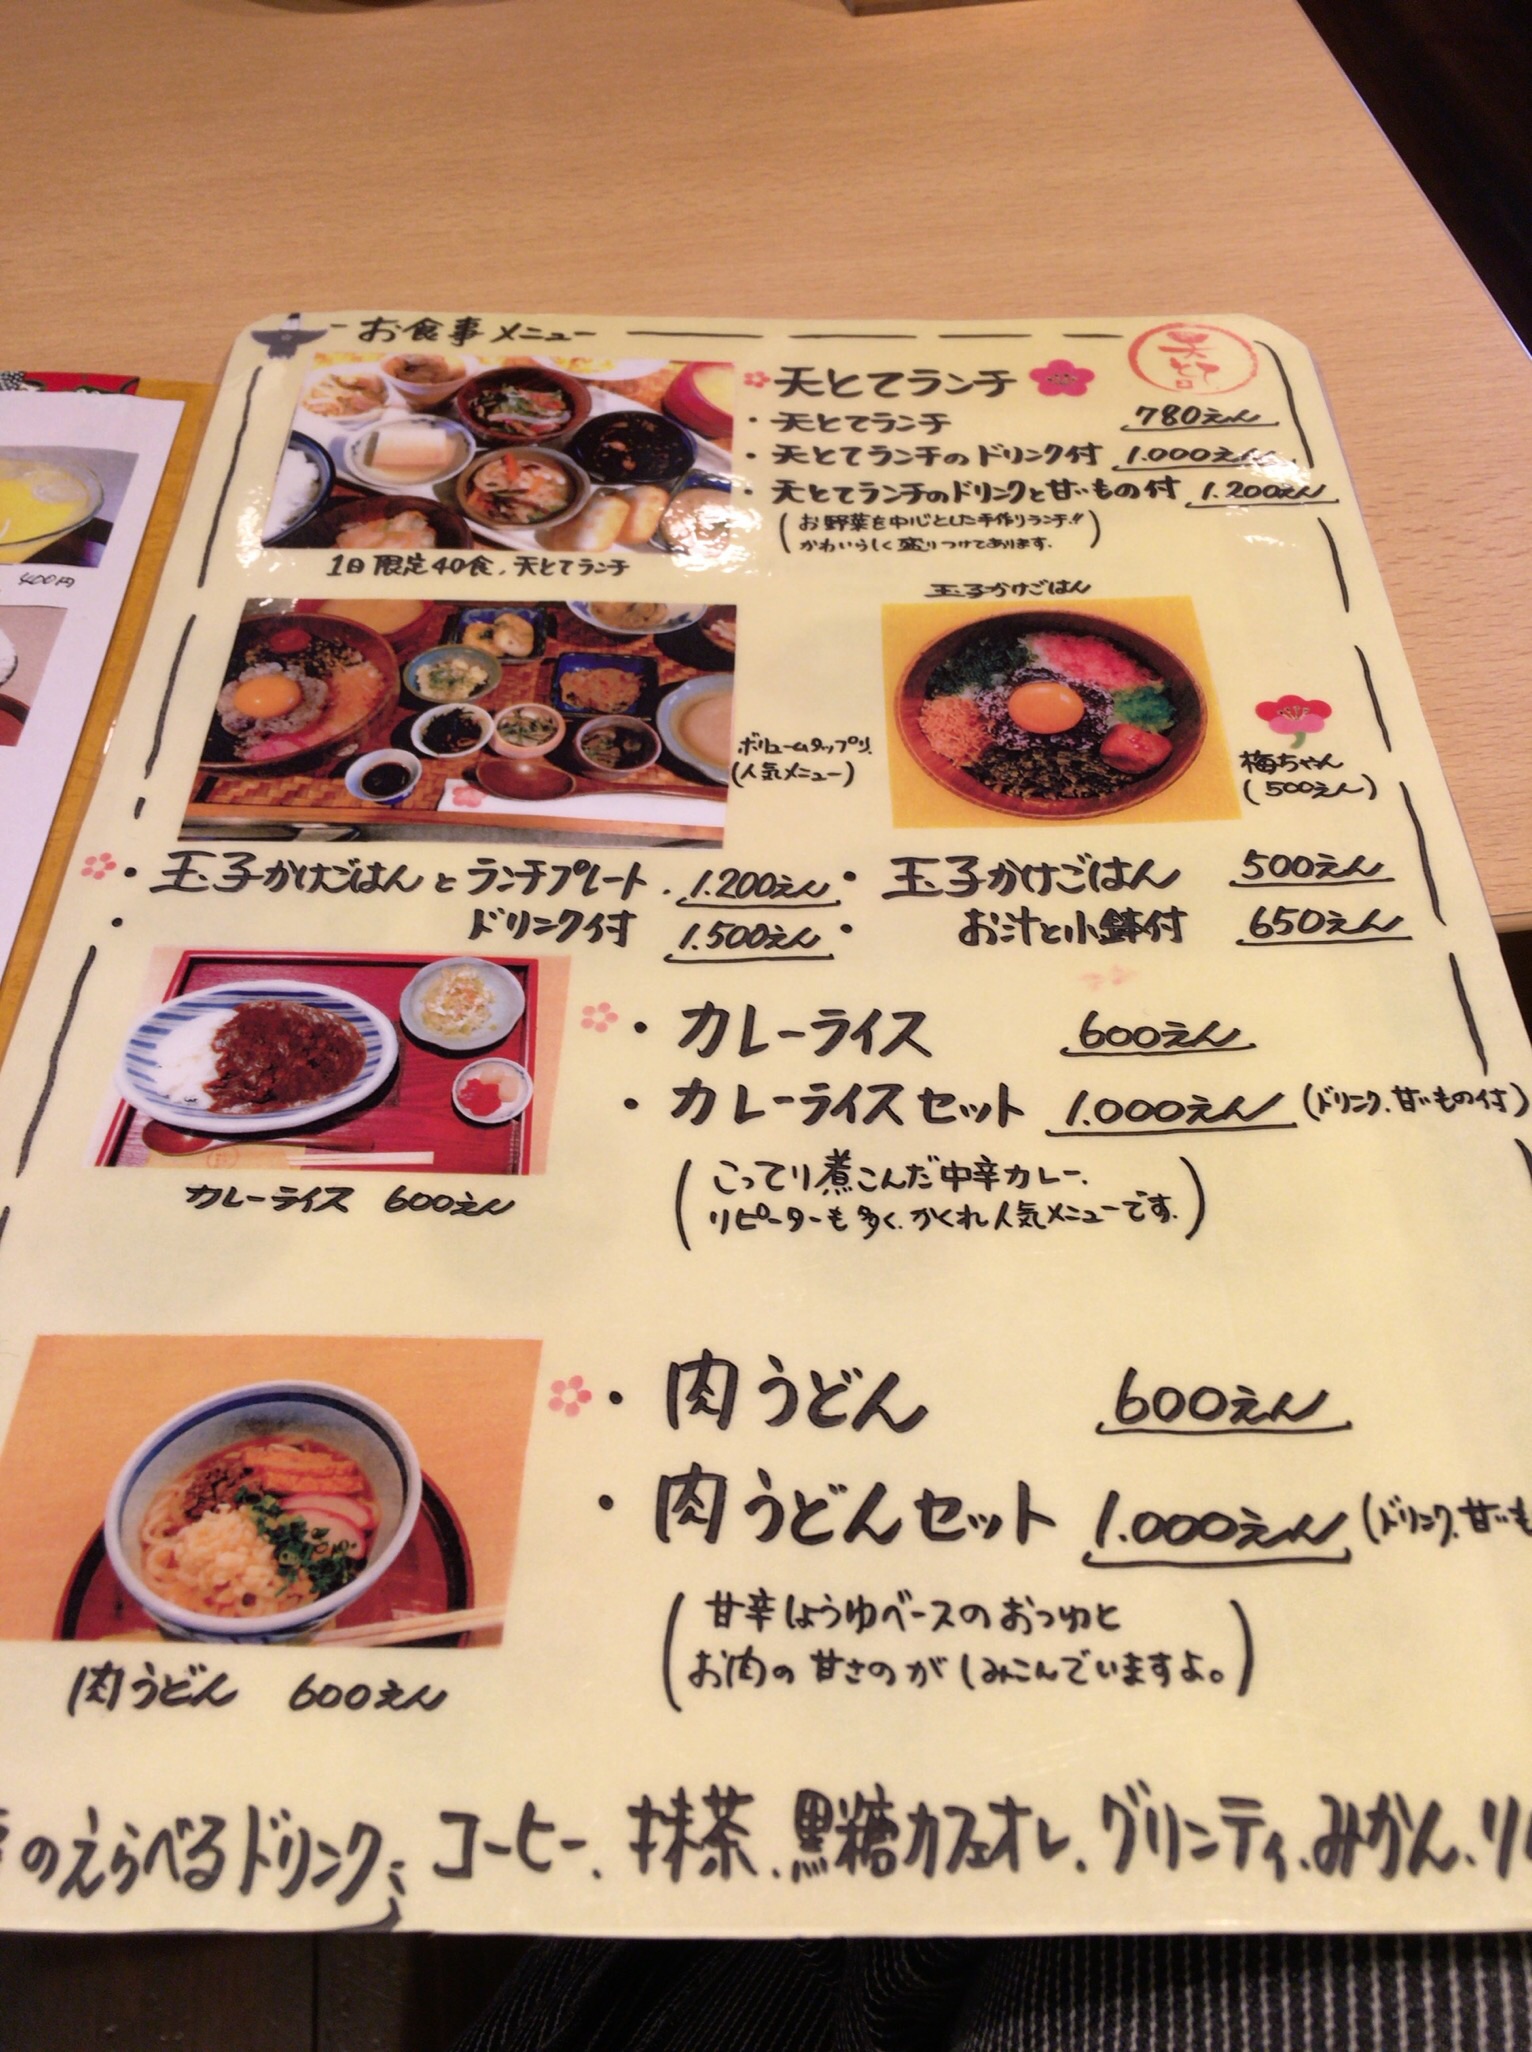 お食事メニュー
天とてランチ
・天とてランチ 780えん
・天とてランチのドリンク付 1.000えん
・天とてランチのドリンクと甘いもの付 1.200えん
(お野菜を中心とした手作りランチ!!
かわいらしく盛りつけてあります.)
1日限定40食、天とてランチ
玉子かけごはん
ボリュームタップリ.
(人気メニュー)
梅ちゃん
(500えん)
・玉子かけごはんとランチプレート. 1.200えん
・ドリンク付 1.500えん
・玉子かけごはん 500えん
・お汁と小鉢付 650えん
・カレーライス 600えん
・カレーライスセット 1.000えん (ドリンク、甘いもの付)
(こってり煮こんだ中辛カレー、
リピーターも多く、かくれ人気メニューです.)
カレーライス 600えん
・肉うどん 600えん
・肉うどんセット 1.000えん (ドリンク、甘いも
(甘辛しょうゆベースのおつゆと
お肉の甘さのがしみこんでいますよ。)
肉うどん 600えん
のえらべるドリンク、コーヒー、抹茶、黒糖カフェオレ、グリンティ、みかん、リ
400円